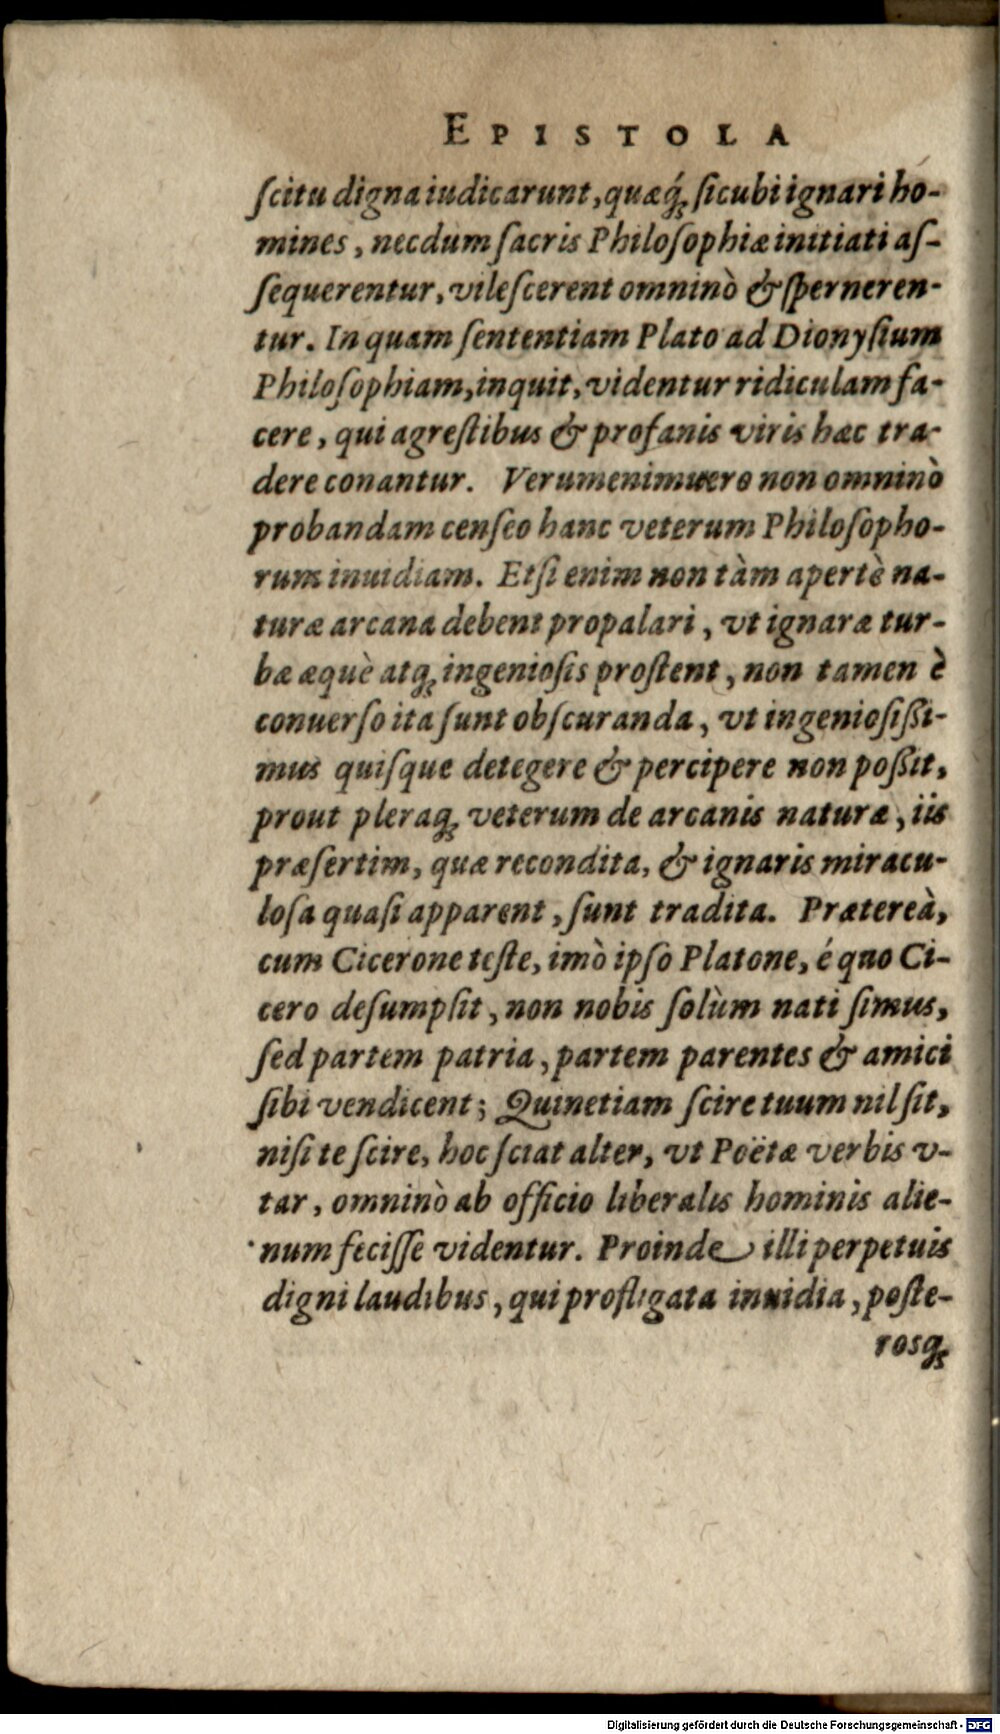 EPISTOLA
ſcitu digna iudicarunt, quæq́; ſicubi ignari ho-
mines, necdum ſacris Philoſophiæ initiati aſ-
ſequerentur, vileſcerent omninò & ſperneren-
tur. In quam ſententiam Plato ad Dionyſium
Philoſophiam, inquit, videntur ridiculam fa-
cere, qui agreſtibus & profanis viris hæc tra-
dere conantur. Verumenimuero non omninò
probandam cenſeo hanc veterum Philoſopho-
rum inuidiam. Etſi enim non tàm apertè na-
turæ arcana debent propalari, vt ignaræ tur-
bæ æquè atq; ingenioſis proſtent, non tamen è
conuerſo ita ſunt obſcuranda, vt ingenioſißi-
mus quiſque detegere & percipere non poßit,
prout pleraq; veterum de arcanis naturæ, iis
præſertim, quæ recondita, & ignaris miracu-
loſa quaſi apparent, ſunt tradita. Prætereà,
cum Cicerone teſte, imò ipſo Platone, é quo Ci-
cero deſumpſit, non nobis ſolùm nati ſimus,
ſed partem patria, partem parentes & amici
ſibi vendicent; Quinetiam ſcire tuum nil ſit,
niſi te ſcire, hoc ſciat alter, vt Poëtæ verbis v-
tar, omninò ab officio liberalis hominis alie-
num feciſſe videntur. Proinde illi perpetuis
digni laudibus, qui profligata inuidia, poſte-
rosq;
Digitalisierung gefördert durch die Deutsche Forschungsgemeinschaft - DFG